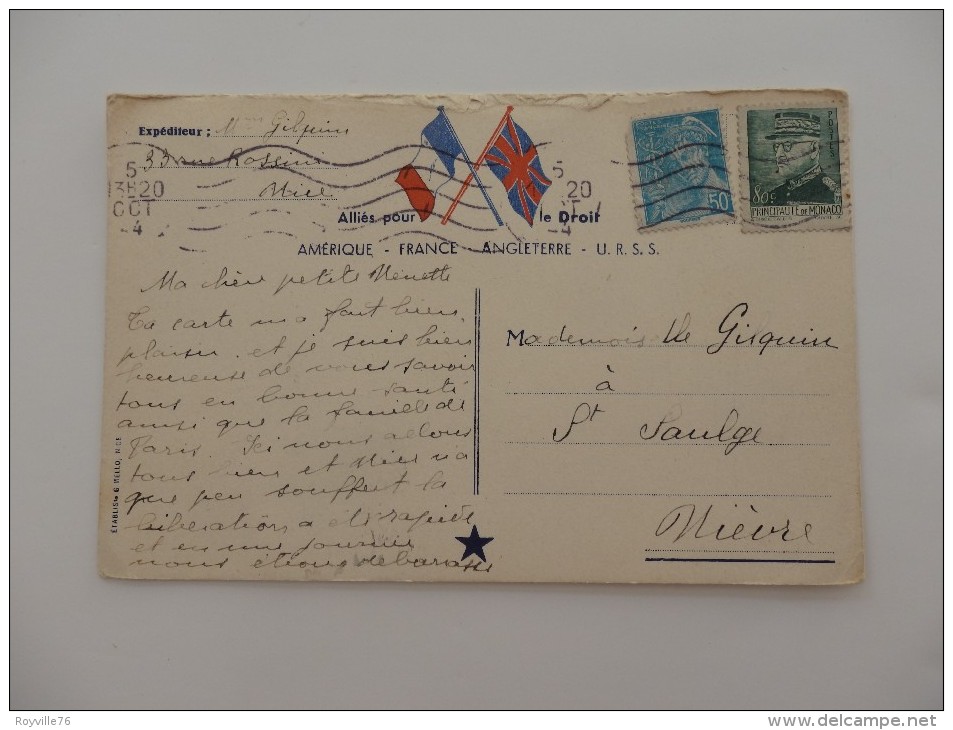 Expéditeur : Mme Gilquin
33 rue Rossini
Nice
5
13H20
OCT
-4
5
20
-4
50
POSTES
80c
PRINCIPAUTÉ DE MONACO
Alliés pour le Droit
AMÉRIQUE - FRANCE - ANGLETERRE - U. R. S. S.
Ma chère petite Nenette
Ta carte m'a fait bien
plaisir et je suis bien
heureuse de vous savoir
tous en bonne santé
ainsi que la famille de
Paris. Ici nous allons
tous bien et Nice n'a
que peu souffert la
libération a été rapide
et en une journée
nous étions débarassés
ÉTABLISts G MELLO, NICE
Mademoiselle Gilquin
à
St Saulge
Nièvre
Royville76
delcampe.net